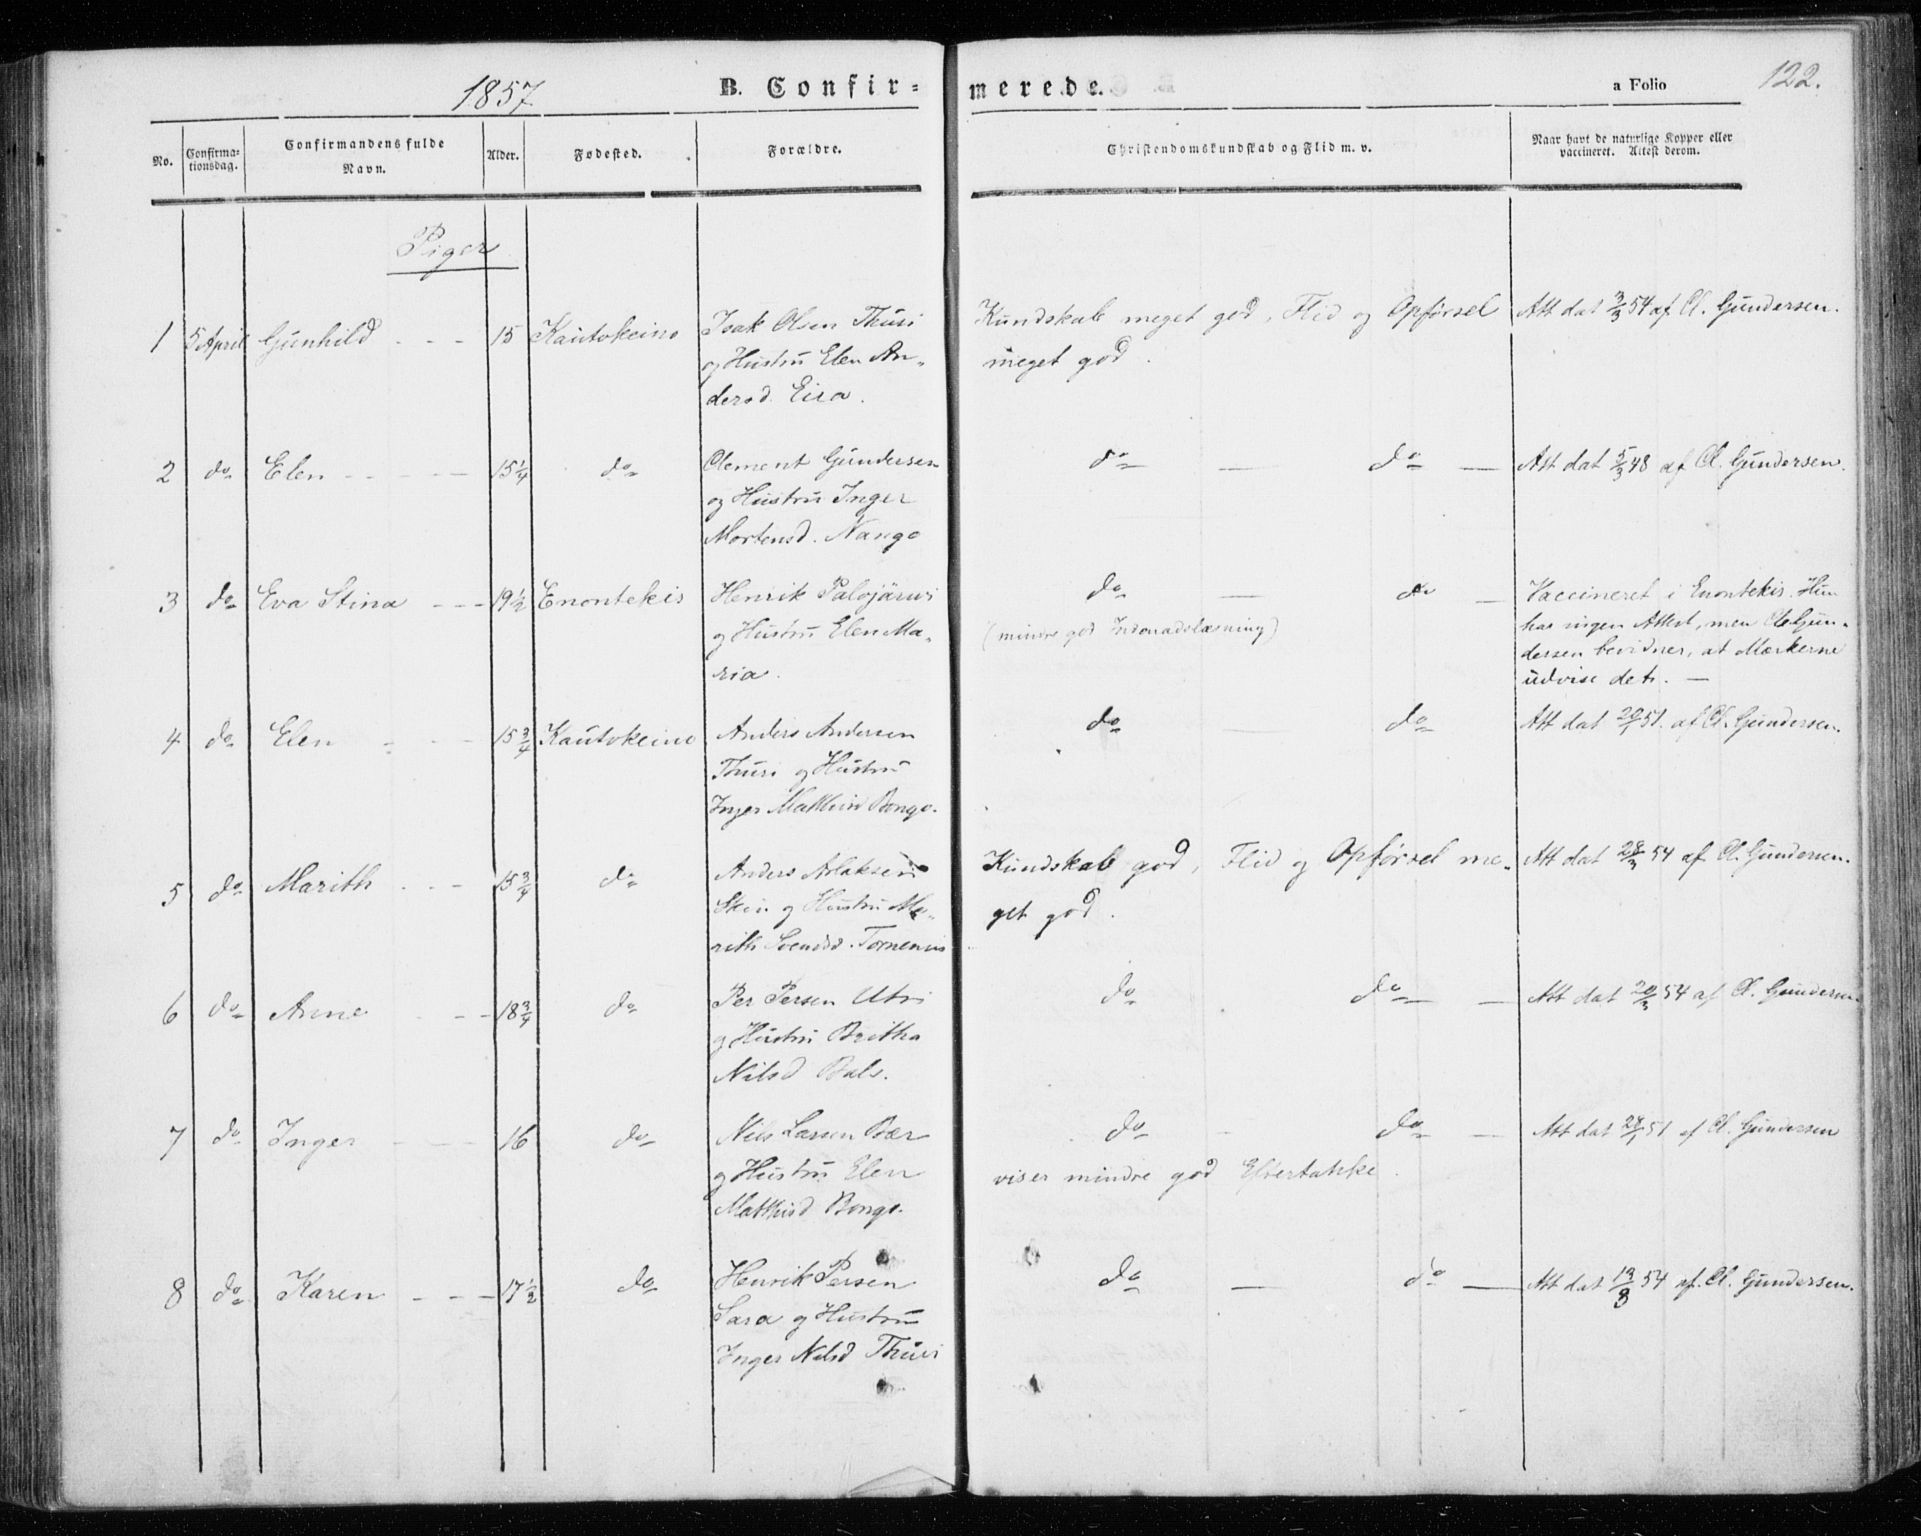 1857
B. Confir-
merede.
a Folio
122.
No.
Confirma-
tionsdag.
Confirmandens fulde
Navn.
Alder.
Fødested.
Forældre.
Christendomskundskab og Flid m. v.
Naar havt de naturlige Kopper eller
vaccineret. Attest derom.
Piger
1 5 April Gunhild - - - 15 Kautokeino Isak Olsen Thuri
og Hustru Elen An-
dersd. Eira.
Kundskab meget god, Flid og Opførsel
meget god.
Att dat 3/3 54 af Cl. Gundersen.
2 do Elen - - - 15 1/4 do Clement Gundersen
og Hustru Inger
Mortensd. Nango
do — do —
Att dat 5/3 48 af Cl. Gundersen.
3 do Eva Stina - - - 19 1/2 Enontekis Henrik Palojärwi
og Hustru Elen Ma-
ria.
do — do —
(mindre god Indenadslæsning)
Vaccineret i Enontekis. Hun
har ingen Attest, men Cl. Gun-
dersen bevidner, at Mærkerne
udvise det. —
4 do Elen - - - 15 3/4 Kautokeino Anders Andersen
Thuri og Hustru
Inger Mathisd Bongo.
do — do
Att dat 20/1 51. af Cl. Gundersen.
5 do Marith - - - 15 3/4 do Anders Aslaksen
og Hustru Ma-
rith Svendsd.
Kundskab god, Flid og Opførsel me-
get god.
Att dat 28/3 54 af Cl. Gundersen.
6 do Anne - - - 18 3/4 do Per Persen Utsi
og Hustru Britha
Nilsd Bals.
do do —
Att dat 20/3 54 af Cl. Gundersen
7 do Inger - - - 16 do Nils Larsen Bær
og Hustru Elen
Matthisd Bongo.
do - do —
viser mindre god Eftertanke.
Att dat 28/1 51 af Cl. Gundersen
8 do Karen - - - 17 1/2 do Henrik Persen
Sara og Hustru
Inger Nilsd Thuri
do — do —
Att dat 19/8 54 af. Cl. Gundersen.